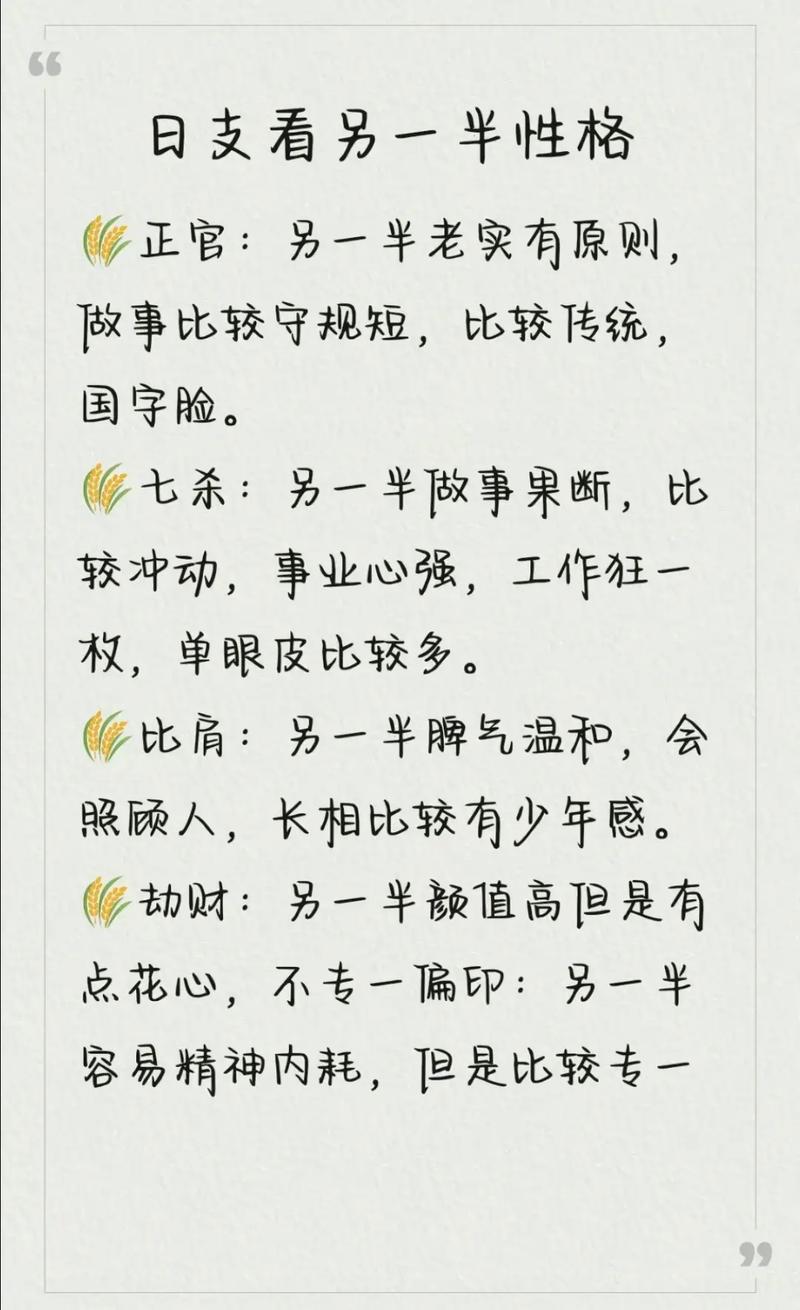 日支看另一半性格
🌾正官：另一半老实有原则，
做事比较守规短，比较传统，
国字脸。
🌾七杀：另一半做事果断，比
较冲动，事业心强，工作狂一
枚，单眼皮比较多。
🌾比肩：另一半脾气温和，会
照顾人，长相比较有少年感。
🌾劫财：另一半颜值高但是有
点花心，不专一偏印：另一半
容易精神内耗，但是比较专一